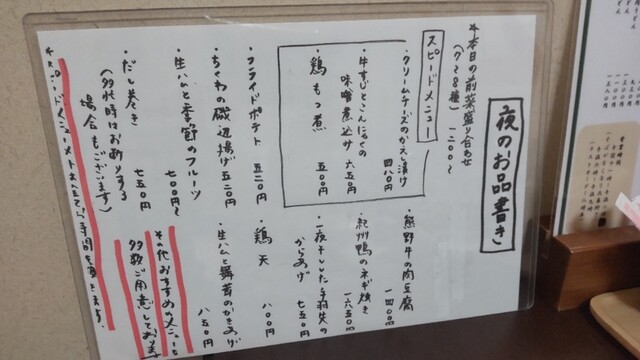 夜のお品書き
*本日の前菜盛り合わせ
(7~8種) 一二〇〇~
スピードメニュー
・クリームチーズのかえし漬け 四八〇円
・牛すじとこんにゃくの
味噌煮込み 六五〇円
・鶏もつ煮 五五〇円
・フライドポテト 五二〇円
・ちくわの磯辺揚げ 五二〇円
・生ハムと季節のフルーツ
七〇〇円~
・だし巻き 七五〇円
(多忙時はお断りする
場合もございます)
・熊野牛の肉豆腐
一四〇〇円
・紀州鴨のネギ焼き
一六五〇円
・一夜干しした手羽先の
からあげ 七五〇円
・鶏天 八〇〇円
・生ハムと舞茸のかきあげ
八五〇円
その他おすすめメニューも
多数ご用意しております
*スピードメニュー以外は お時間を頂きます。
営業時間